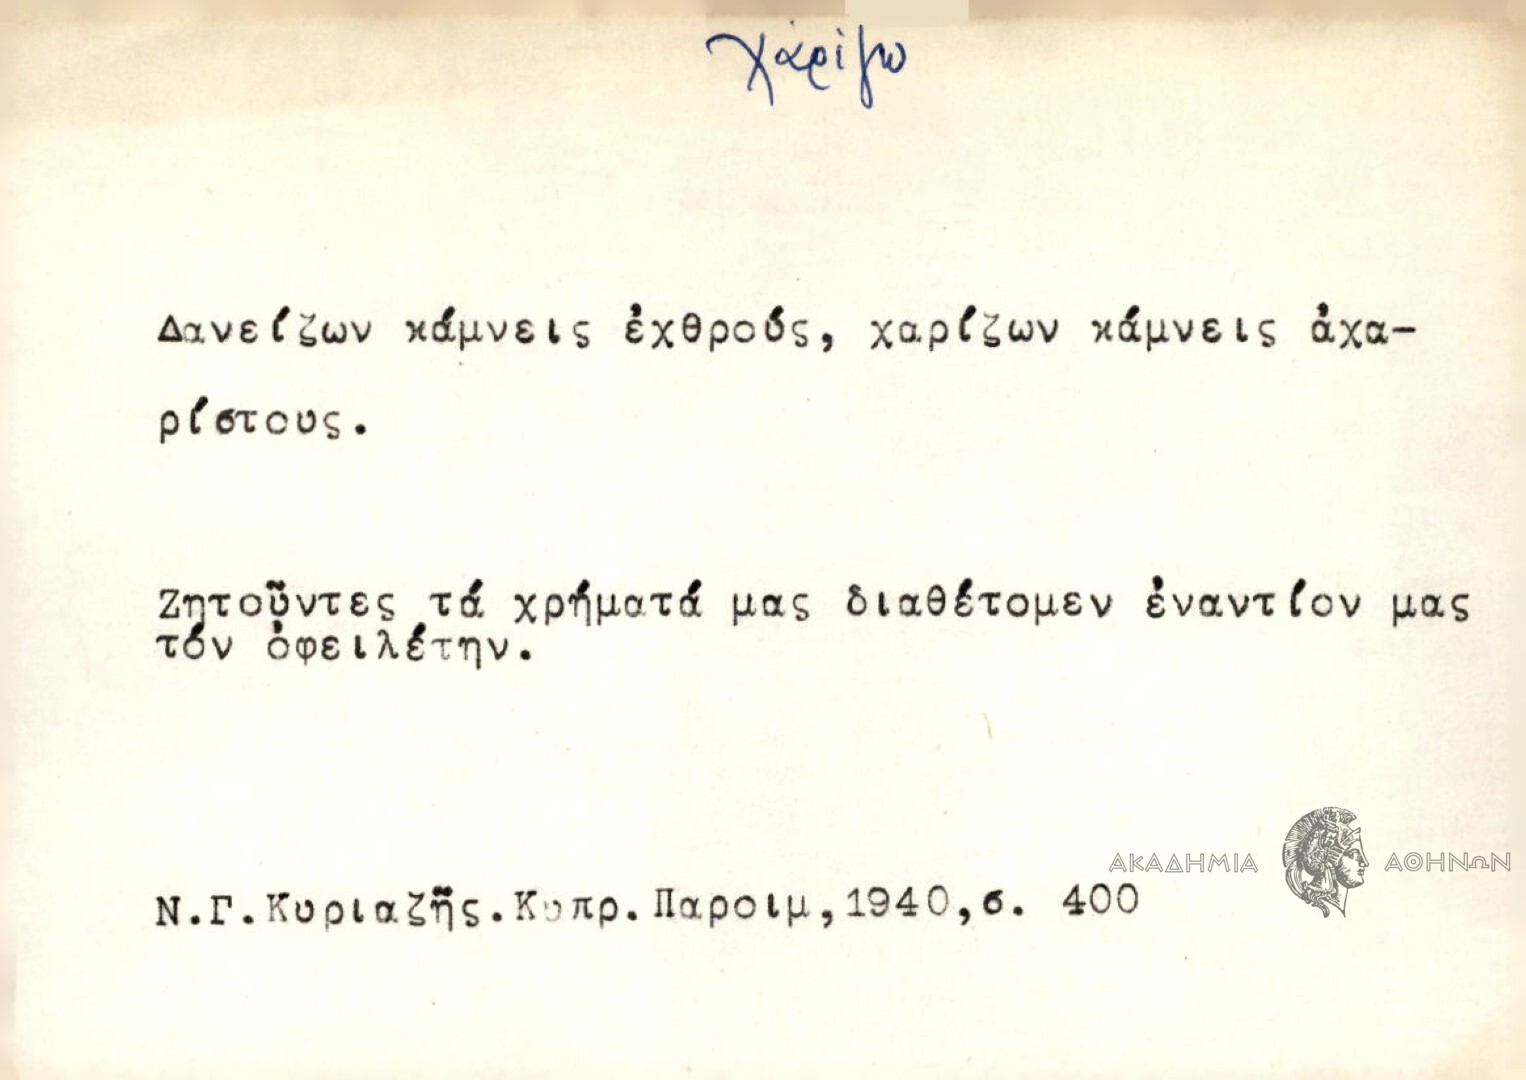 χαρίζω
Δανείζων κάμνεις ἐχθρούς, χαρίζων κάμνεις ἀχα-
ρίστους.
Ζητοῦντες τά χρήματά μας διαθέτομεν ἐναντίον μας
τόν ὀφειλέτην.
ΑΚΑΔΗΜΙΑ ΑΘΗΝΩΝ
Ν.Γ.Κυριαζῆς.Κυπρ.Παροιμ,1940,σ. 400